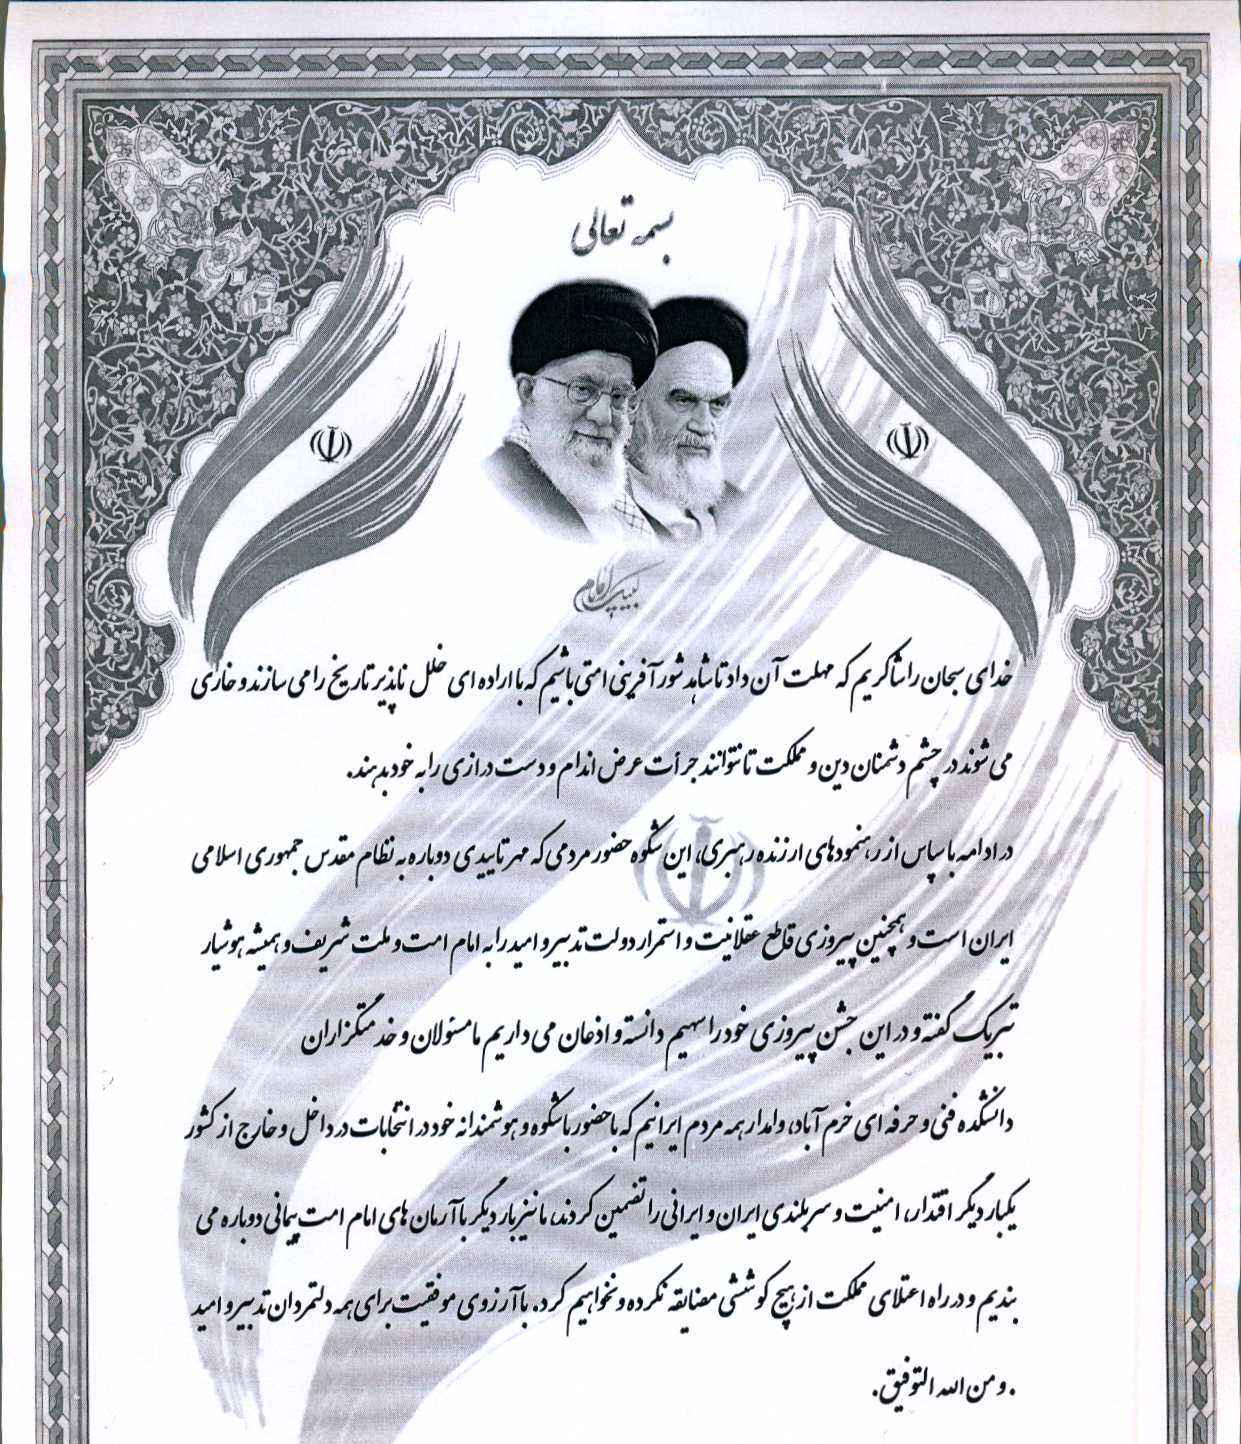 بسمه تعالی
لبیک یا امام
خدای سبحان را شاکریم که مهلت آن داد تا شاهد شور آفرینی امتی باشیم که با اراده ای خلل ناپذیر تاریخ را می سازند و خاری
می شوند در چشم دشمنان دین و مملکت تا نتوانند جرأت عرض اندام و دست درازی را به خود بدهند.
در ادامه با سپاس از رهنمودهای ارزنده رهبری، این شکوه حضور مردمی که مهر تاییدی دوباره به نظام مقدس جمهوری اسلامی
ایران است و همچنین پیروزی قاطع عقلانیت و استمرار دولت تدبیر و امید را به امام امت و ملت شریف و همیشه هوشیار
تبریک گفته و در این جشن پیروزی خود را سهیم دانسته و اذعان می داریم ما مسئولان و خدمتگزاران
دانشکده فنی و حرفه ای خرم آباد، وامدار همه مردم ایرانیم که با حضور باشکوه و هوشمندانه خود در انتخابات در داخل و خارج از کشور
یکبار دیگر اقتدار، امنیت و سربلندی ایران و ایرانی را تضمین کردند، ما نیز بار دیگر با آرمان های امام امت پیمانی دوباره می
بندیم و در راه اعتلای مملکت از هیچ کوششی مضایقه نکرده و نخواهیم کرد. با آرزوی موفقیت برای همه دولتمردان تدبیر و امید
. و من الله التوفیق.